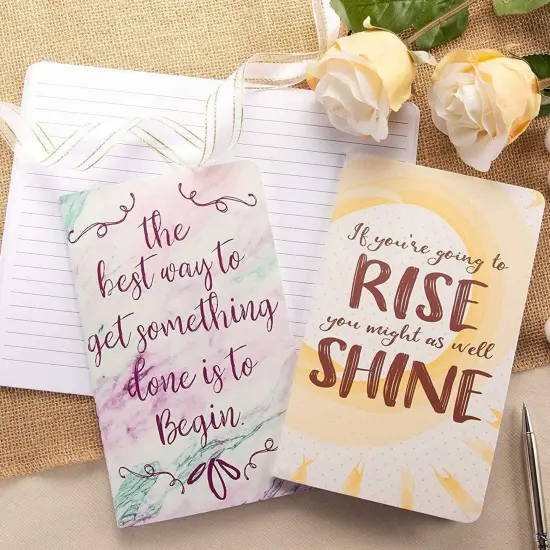 the
best way to
get something
done is to
Begin.
If you're going to
RISE
you might as well
SHINE